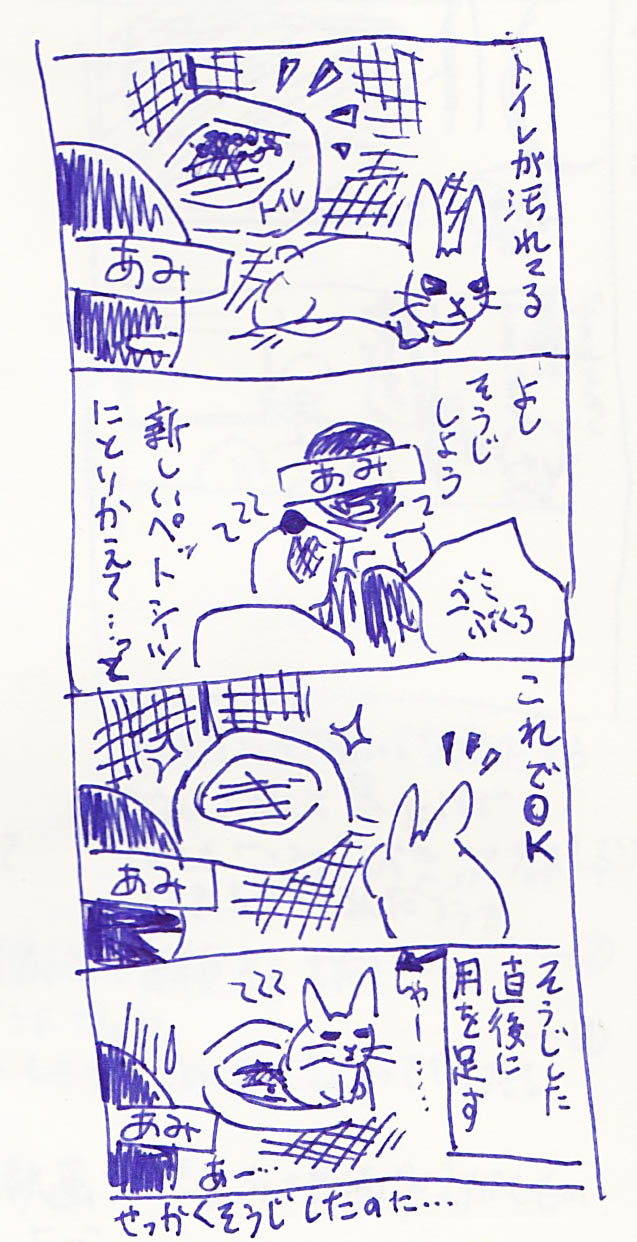 トイレが汚れてる
トイレ
あみ
よし
そうじ
しよう
あみ
zzz
新しいペットシーツ
にとりかえて…っと
ごみ
ぶくろ
これでOK
あみ
そうじした
直後に
用を足す
しゃー……
zzz
あみ
あー…
せっかくそうじしたのた…